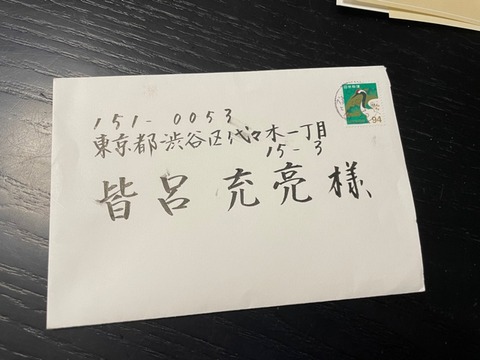 151-0053
東京都渋谷区代々木一丁目
15-3
皆呂 充亮 様
日本郵便
94